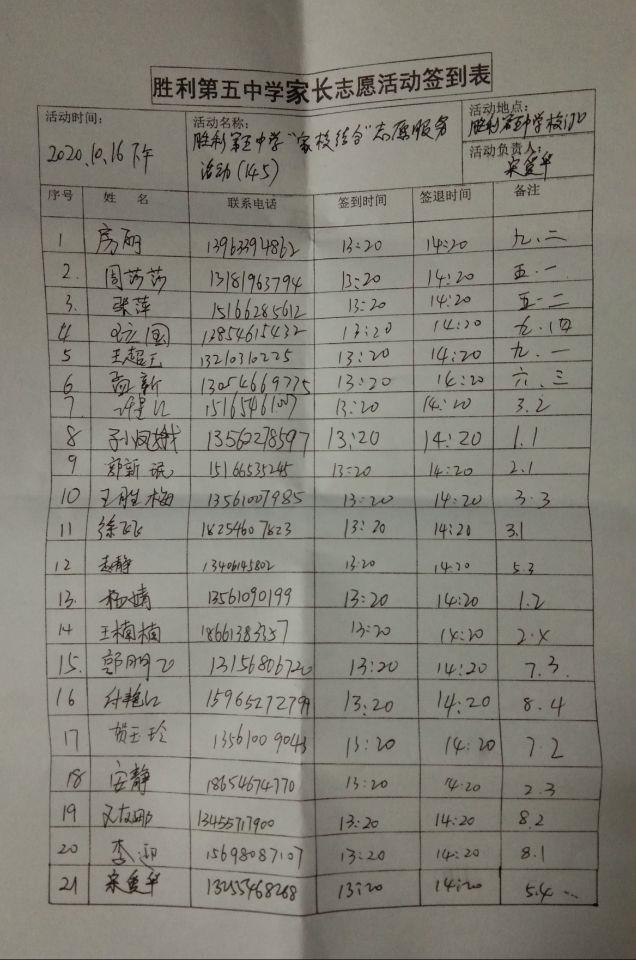 胜利第五中学家长志愿活动签到表
活动时间: 2020.10.16下午
活动名称: 胜利第五中学“家校结合”志愿服务
活动(145)
活动地点: 胜利第五中学校门口
活动负责人: 宋爱华
序号 姓名 联系电话 签到时间 签退时间 备注
1 房丽 13963394862 13:20 14:20 九.二
2. 周莎莎 13181963794 13:20 14:20 五.一
3. 张萍 15166285612 13:20 14:20 五.二
4 国 12854615432 13:20 14:20 九.四
5 王超 13210310225 13:20 14:20 九.一
6 孟新 13054669775 13:20 14:20 六.三
7. 15165461007 13:20 14:20 3.2
8 13560278597 13:20 14:20 1.1
9 郭新 15166535245 13:20 14:20 2.1
10 王胜梅 13561007985 13:20 14:20 3.3
11 徐飞飞 18254607823 13:20 14:20 3.1
12 赵静 13406145802 13:20 14:20 5.3
13. 杨婧 13561090199 13:20 14:20 1.2
14 王楠楠 18661383357 13:20 14:20 2.4
15. 郭 13156806720 13:20 14:20 7.3.
16 付艳红 15965272799 13:20 14:20 8.4
17 贺玉玲 13561009043 13:20 14:20 7.2
18 安静 18654674770 13:20 14:20 2.3
19 娜 13455717900 13:20 14:20 8.2
20 李迎 15698087107 13:20 14:20 8.1
21 宋爱华 13255468268 13:20 14:20 5.4